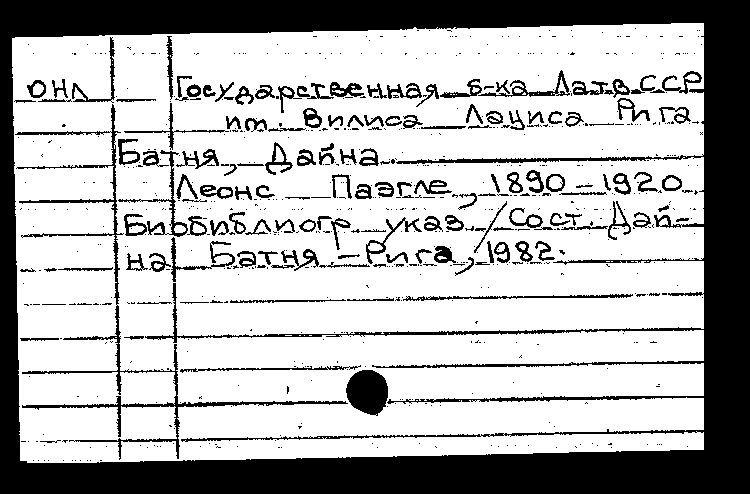 ОНЛ Государственная б-ка Латв.ССР
им. Вилиса Лациса Рига
Батня, Дайна.
Леонс Паэгле, 1890-1920
Биобиблиогр. указ. / Сост. Дай-
на Батня. - Рига, 1982.